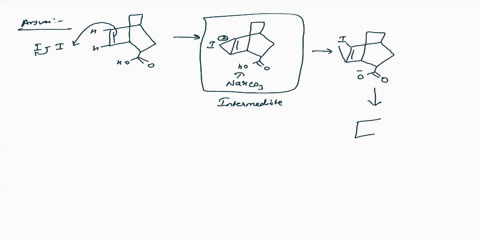 Answer:-
H
I I
H
HO
O
I
HO
O
NaHCO3
Intermediate
I
O
O